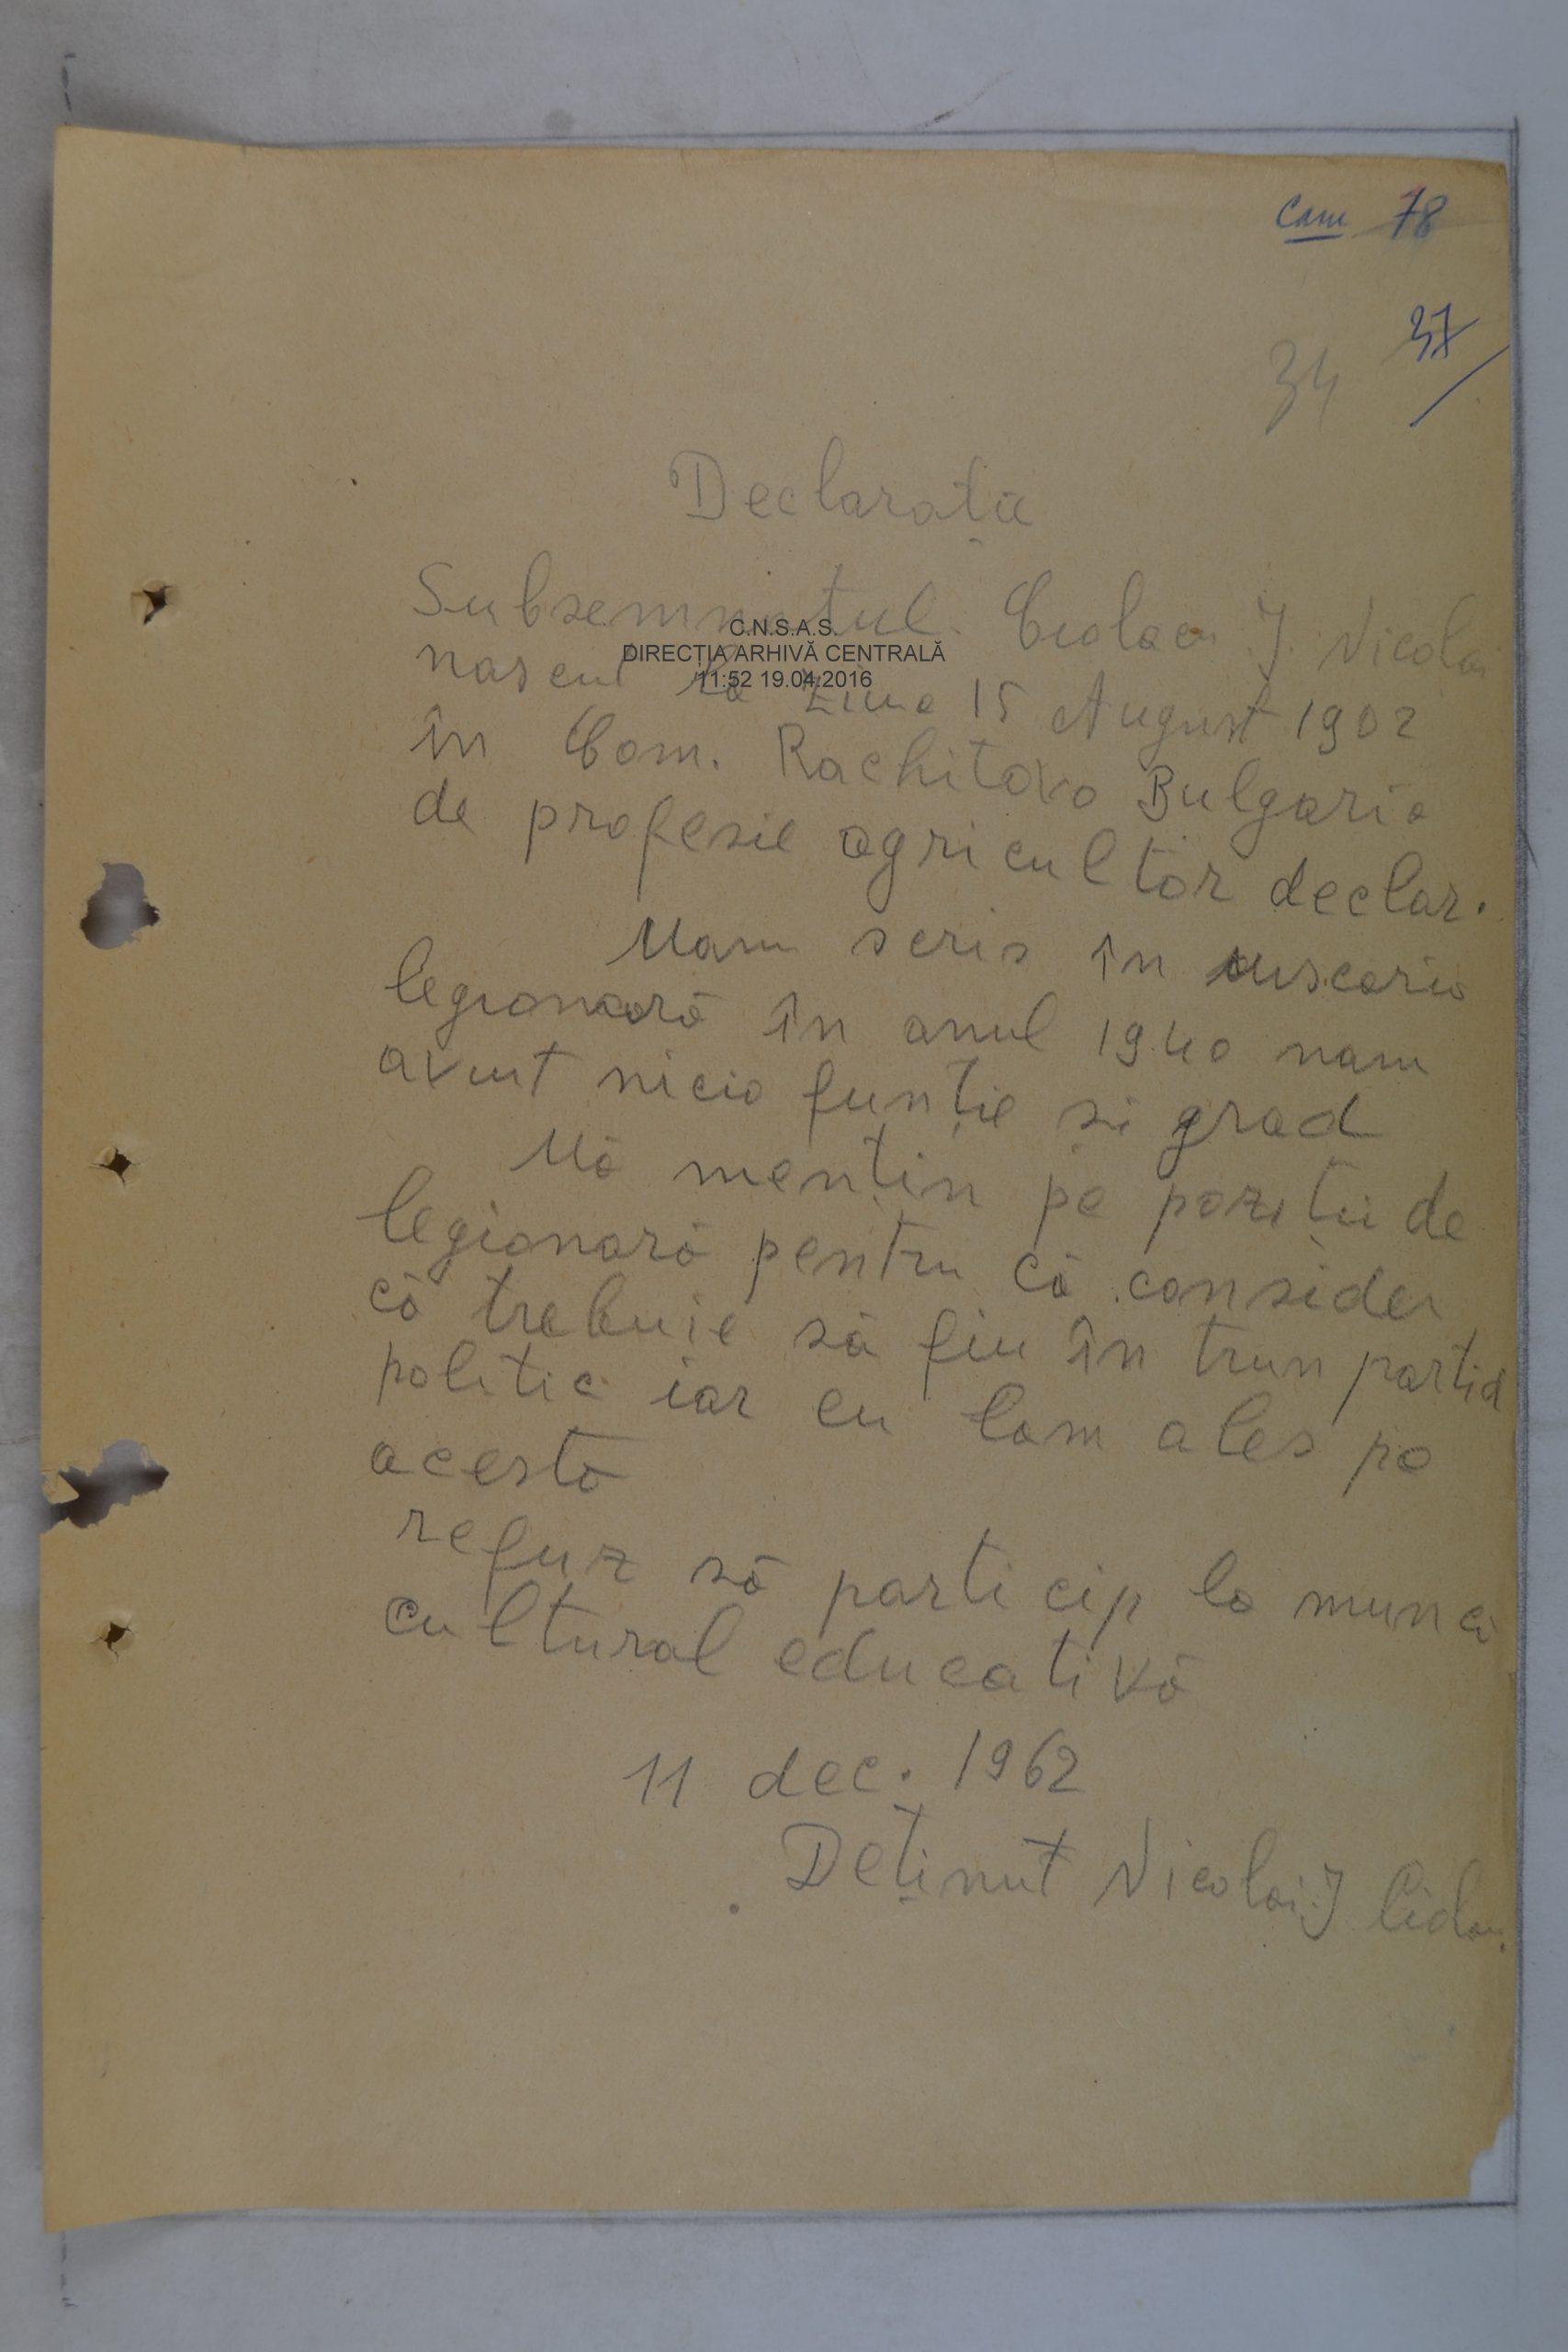 Cam 78
37
34
Declarația
Subsemnatul. Ciolacu J. Nicolai
C.N.S.A.S.
DIRECȚIA ARHIVĂ CENTRALĂ
11:52 19.04.2016
nascut la ziua 15 August 1902
în Com. Rachitovo Bulgaria
de profesie agricultor declar.
Mam scris în miscaria
legionară în anul 1940 nam
avut nicio funție si grad
Mă mențin pe poziții de
legionară pentru că consider
că trebuie să fiu în trun partid
politic iar eu lam ales pa
acesta
refuz să particip la muncă
cultural educativă
11 dec. 1962
Deținut Nicolai J